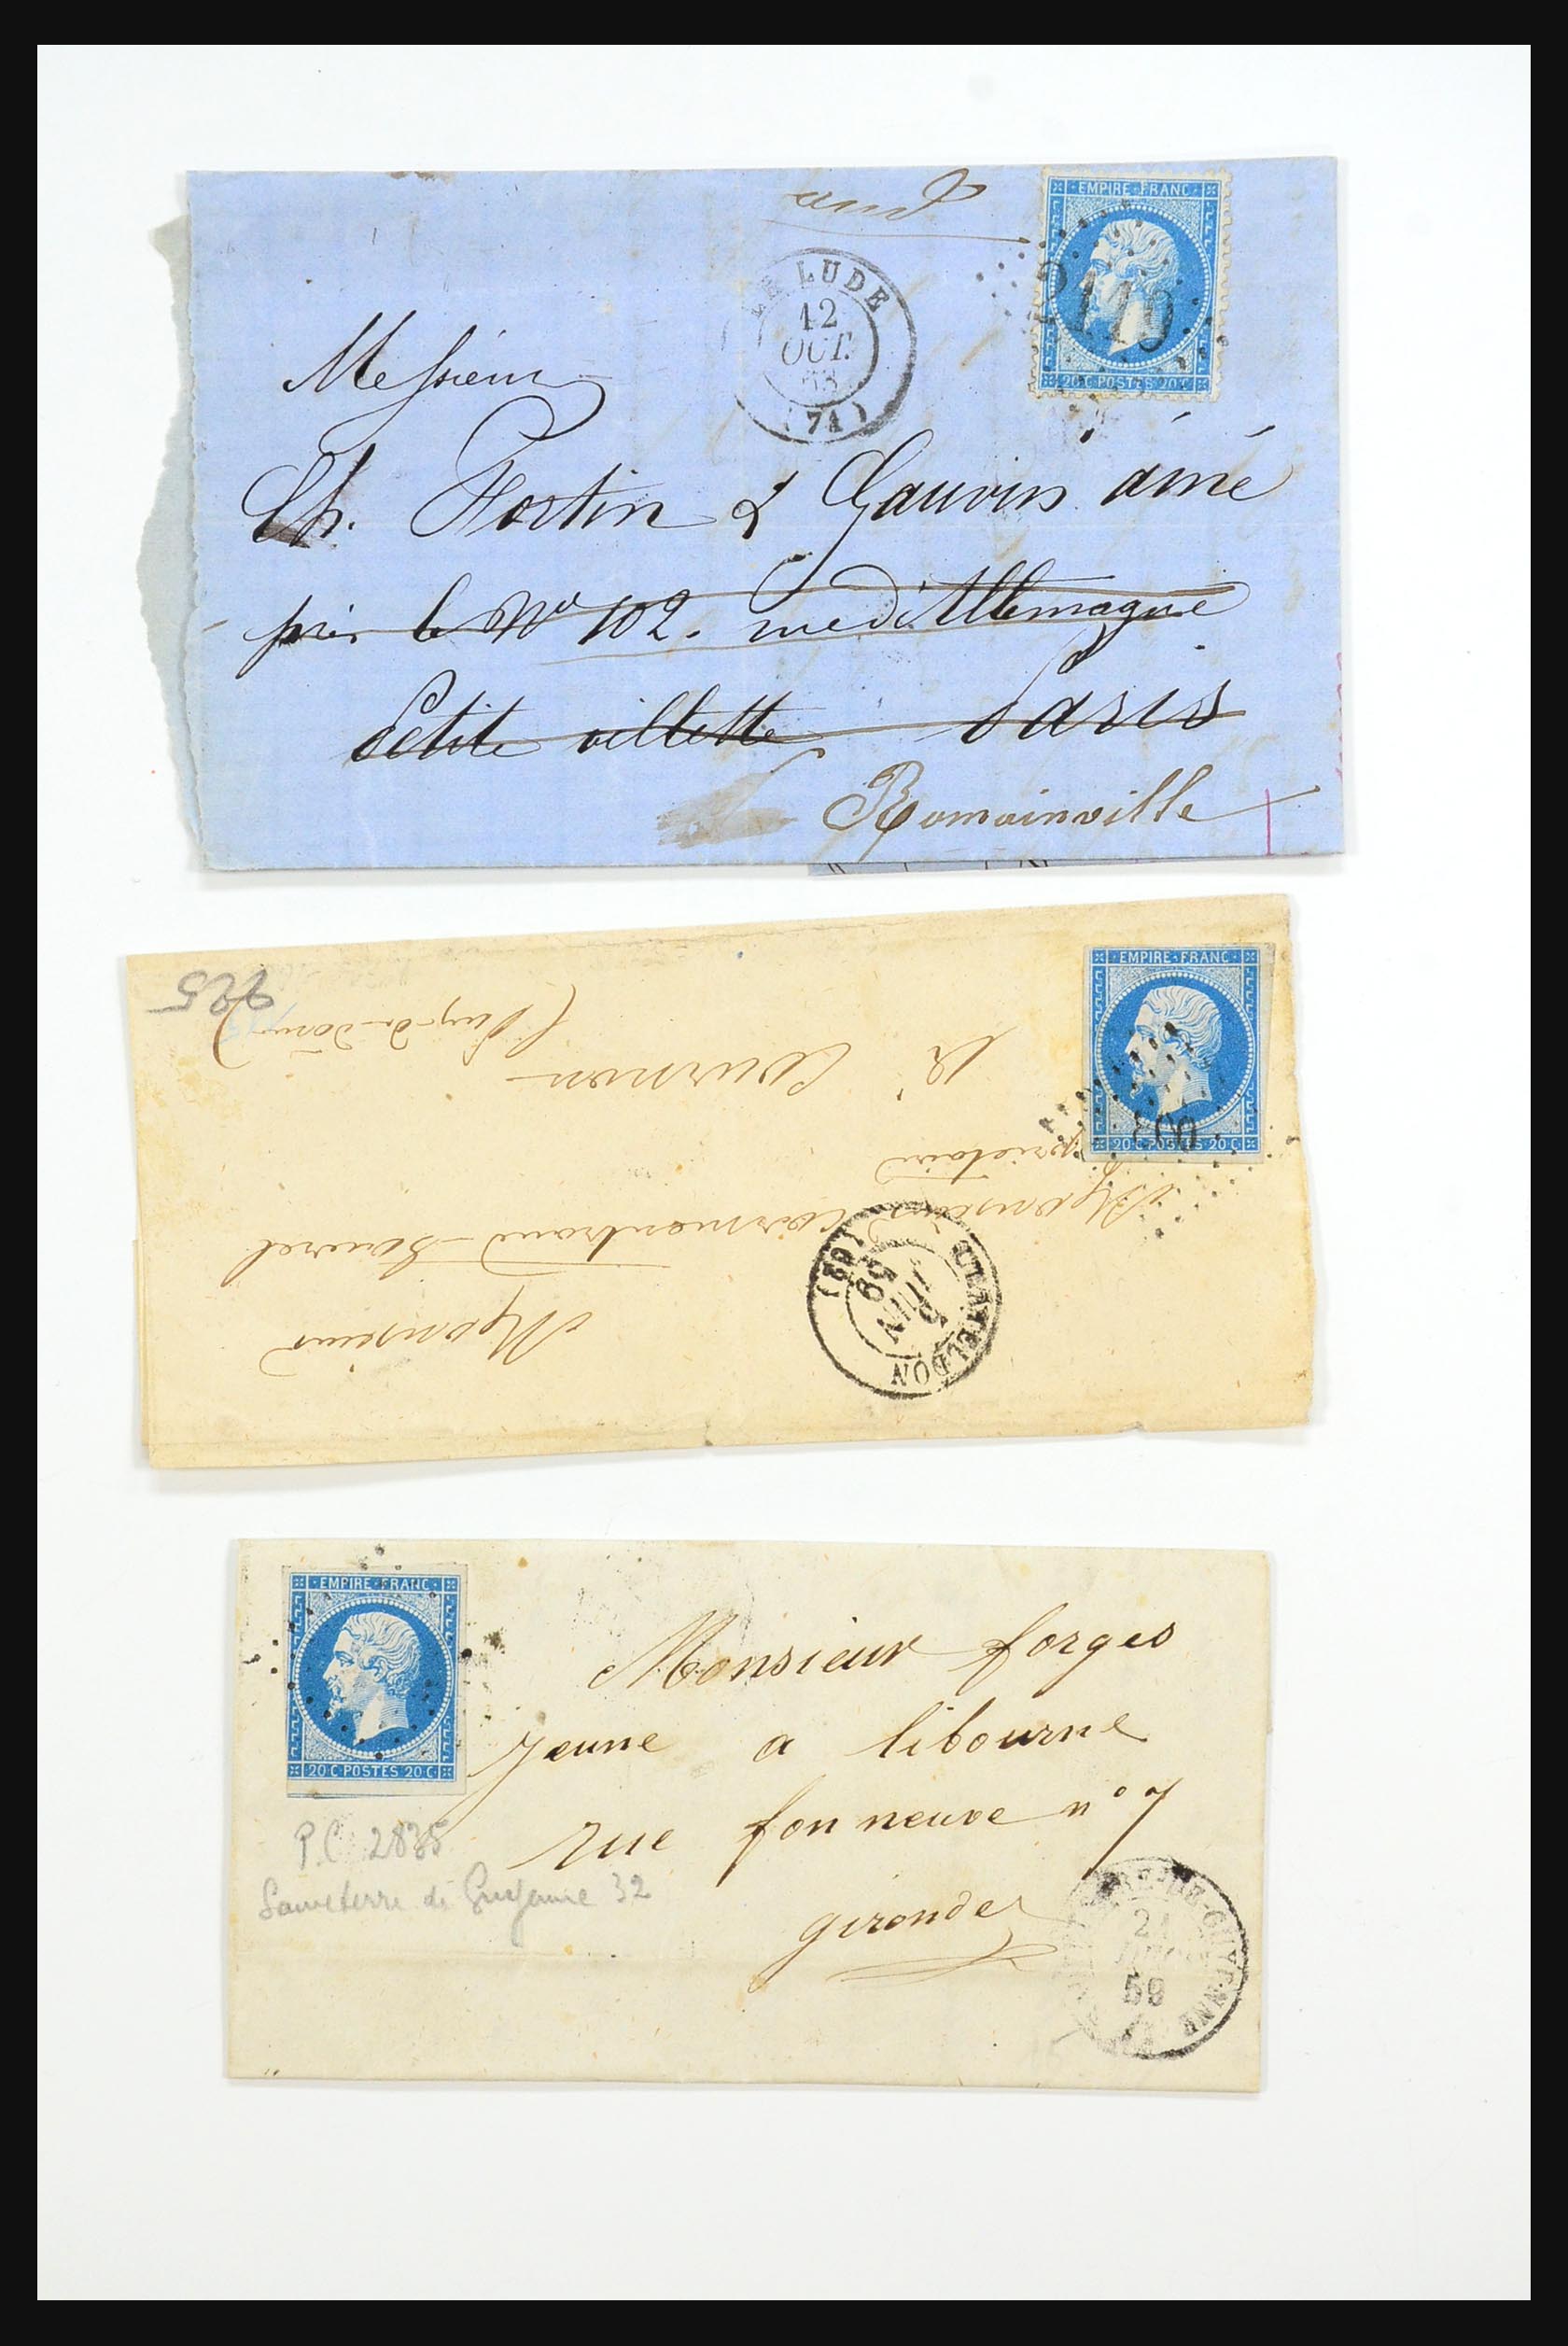 EMPIRE · FRANC
20 C POSTES 20 C
2110
LE LUDE
12
OCT.
63
(71)
Messieurs
Ch. Fortin & Gauvin ainé
près le No 102. rue d'Allemagne
Petite villette Paris
Romainville
EMPIRE · FRANC
20 C POSTES 20 C
Monsieur
propriétaire
à Cournon
(Puy-de-Dôme)
5
JUIN
59
EMPIRE · FRANC
20 C POSTES 20 C
Monsieur forges
jeune a libourne
rue fonneuve n° 7
gironde
P.C. 2835
Sauveterre de Guyenne 32
RE-DE-GUYENNE
21
59